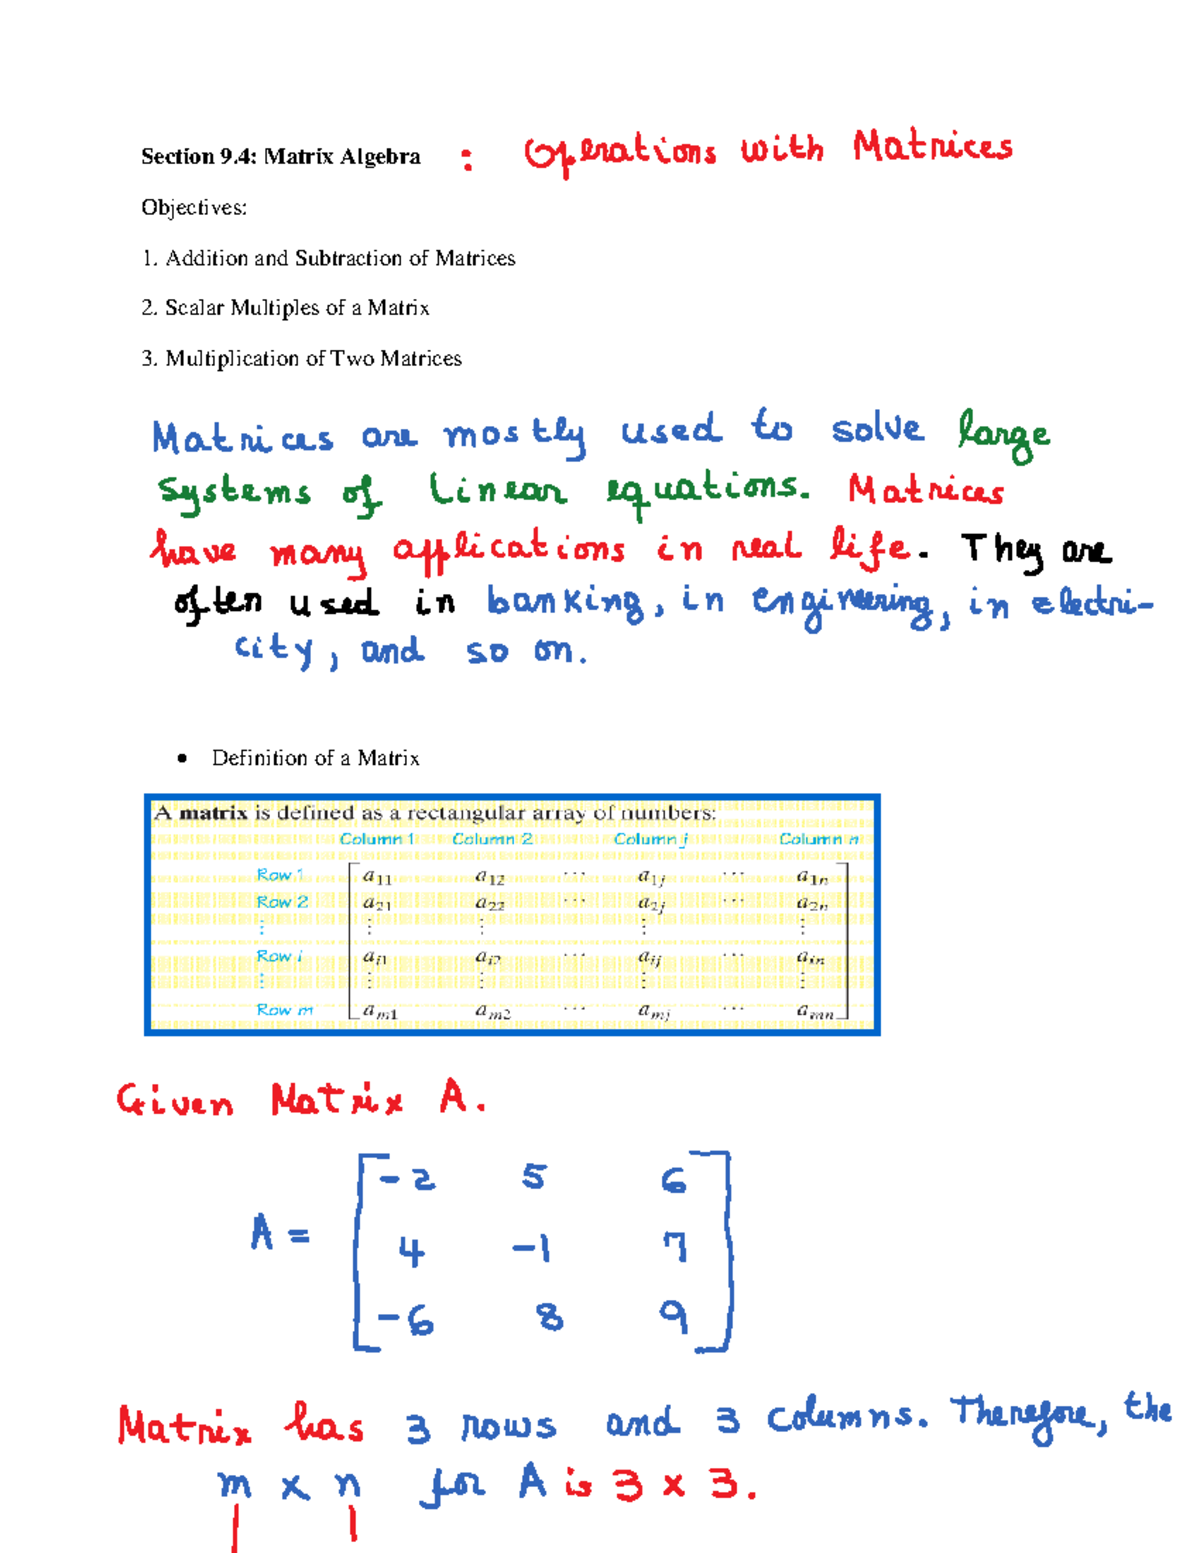 Section 9.4: Matrix Algebra : Operations with Matrices
Objectives:
1. Addition and Subtraction of Matrices
2. Scalar Multiples of a Matrix
3. Multiplication of Two Matrices
Matrices are mostly used to solve large
systems of linear equations. Matrices
have many applications in real life. They are
often used in banking, in engineering, in electri-
city, and so on.
• Definition of a Matrix
A matrix is defined as a rectangular array of numbers:
Column 1 Column 2 Column j Column n
Row 1 a11 a12 ... a1j ... a1n
Row 2 a21 a22 ... a2j ... a2n
⋮ ⋮ ⋮ ⋮ ⋮
Row i ai1 ai2 ... aij ... ain
⋮ ⋮ ⋮ ⋮ ⋮
Row m am1 am2 ... amj ... amn
Given Matrix A.
-2 5 6
A = 4 -1 7
-6 8 9
Matrix has 3 rows and 3 columns. Therefore, the
m x n for A is 3 x 3.